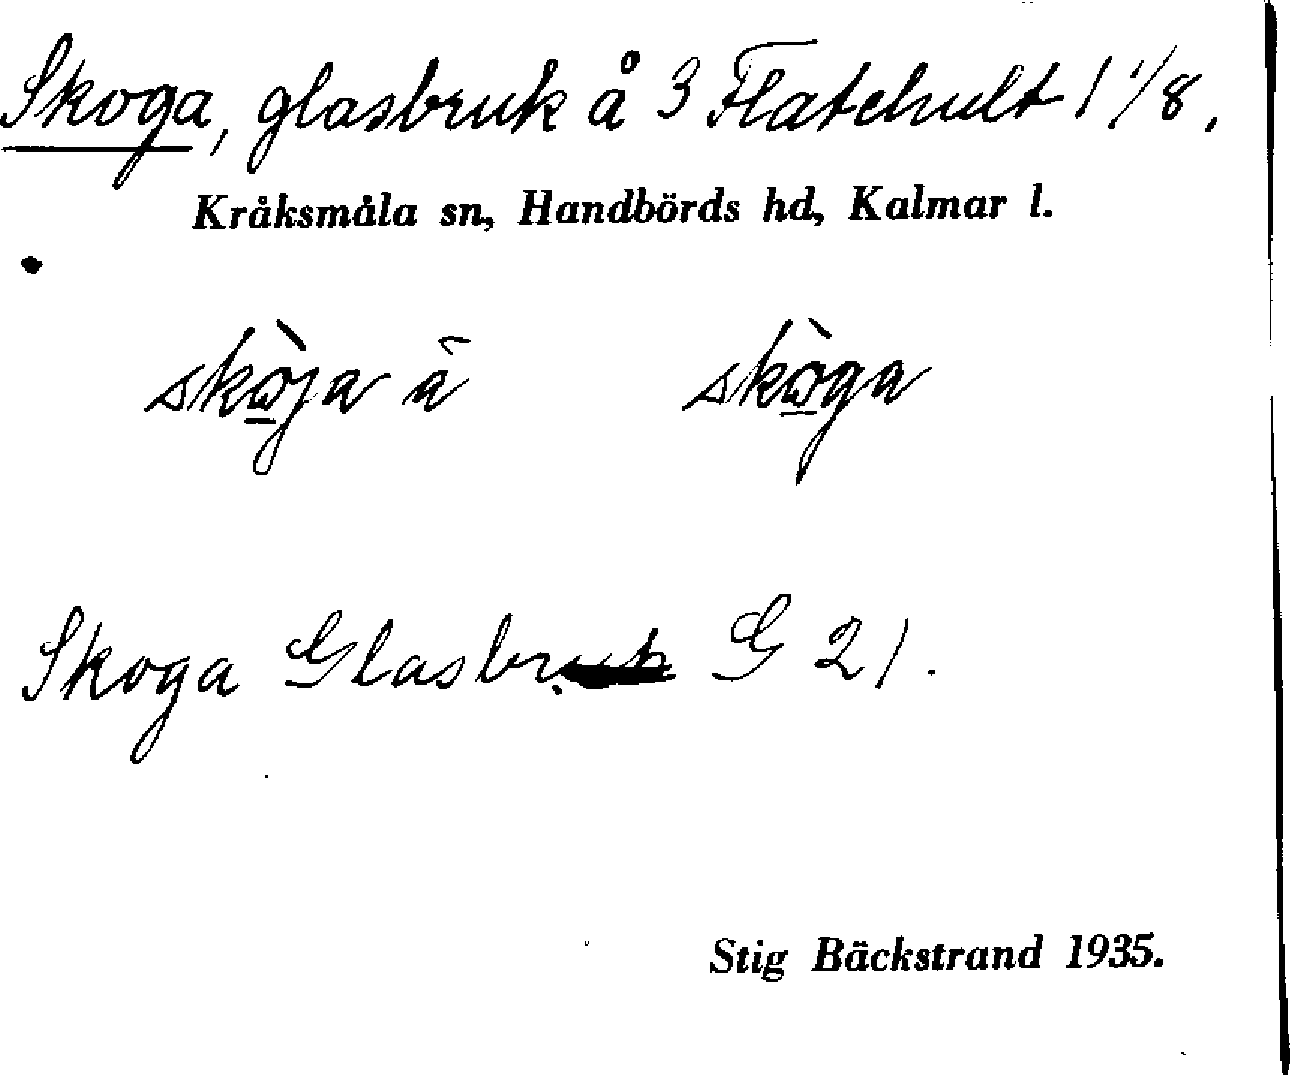 Skoga, glasbruk å 3 Flatehult 1 1/8.
Kråksmåla sn, Handbörds hd, Kalmar l.
skὼ̱ja å skὼ̱ga
Skoga Glasbruk G 21.
Stig Bäckstrand 1935.